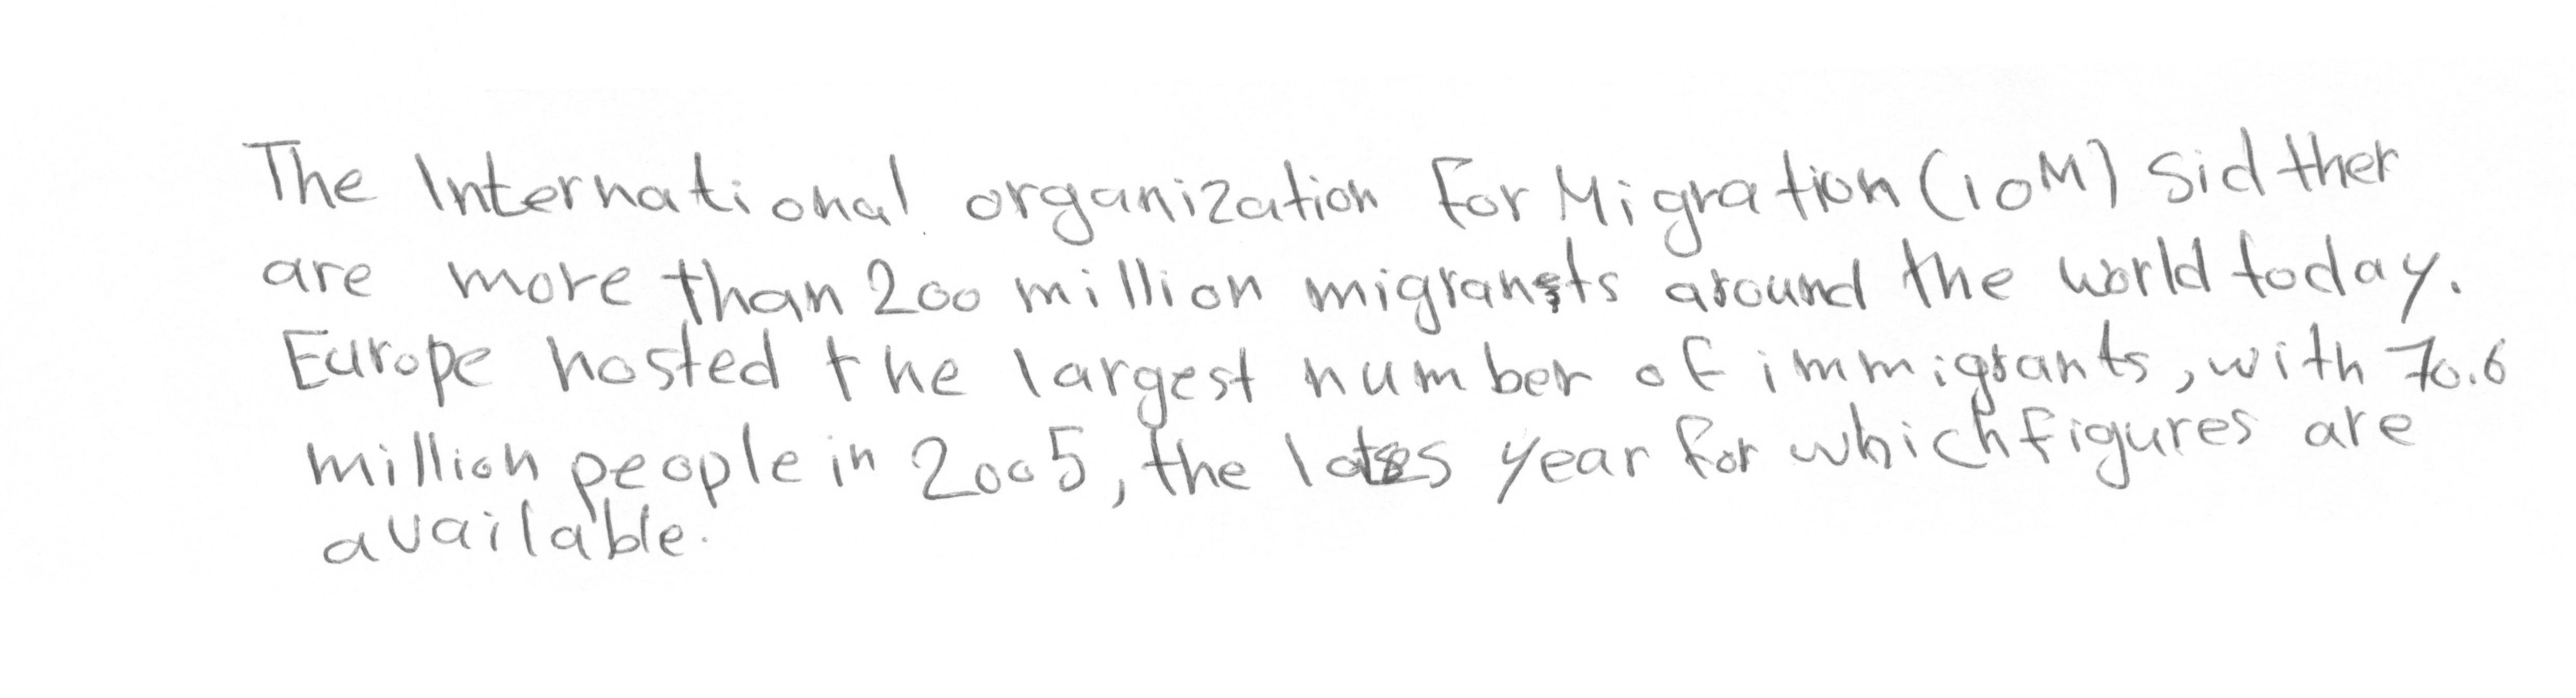 The International organization for Migration (IOM) sid ther
are more than 200 million migrants around the world today.
Europe hosted the largest number of immigrants, with 70.6
million people in 2005, the lates year for which figures are
available.